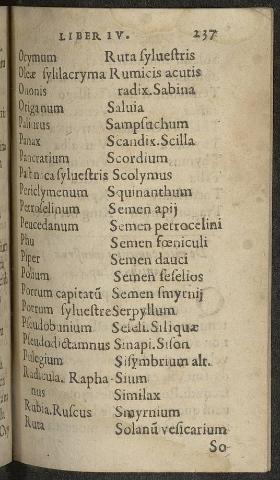 LIBER IV. 237
Ocymum Ruta sylvestris
Oleæ syl.lacryma Rumicis acutis
Ononis radix.Sabina
Origanum Saluia
Paliurus Sampsuchum
Panax Scandix.Scilla
Pancratium Scordium
Pastinica syluestris Scolymus
Periclymenum Squinanthum
Petroselinum Semen apij
Peucedanum Semen petrocelini
Phu Semen fœniculi
Piper Semen dauci
Polium Semen seselios
Porrum capitatū Semen smyrnij
Porrum syluestre Serpyllum
Pseudobunium Seseli.Siliquæ
Pseudodictamnus Sinapi.Sison
Pulegium Sisymbrium alt.
Radicula. Rapha- Sium
nus Similax
Rubia.Ruscus Smyrnium
Ruta Solanū vesicarium
So